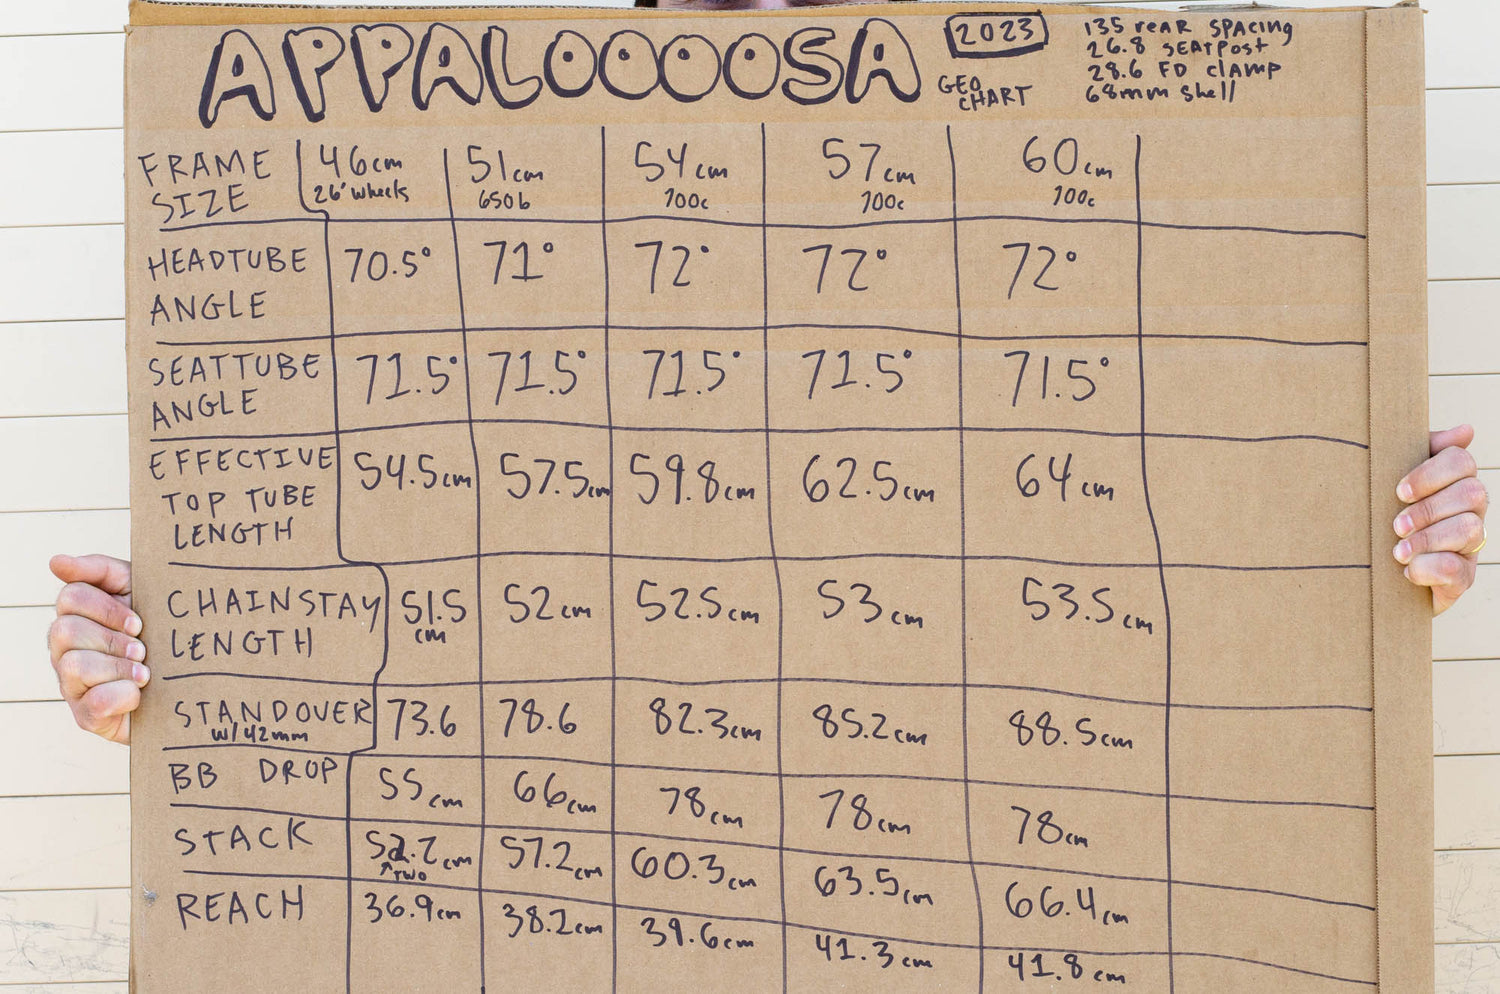 APPALOOOOSA
2023
GEO
CHART
135 rear SPACING
26.8 SEATPOST
28.6 FD clamp
68mm shell
FRAME SIZE 46cm 26" wheels 51cm 650b 54cm 700c 57cm 700c 60cm 700c
HEADTUBE ANGLE 70.5° 71° 72° 72° 72°
SEATTUBE ANGLE 71.5° 71.5° 71.5° 71.5° 71.5°
EFFECTIVE TOP TUBE LENGTH 54.5cm 57.5cm 59.8cm 62.5cm 64cm
CHAINSTAY LENGTH 51.5 cm 52cm 52.5cm 53cm 53.5cm
STANDOVER w/42mm 73.6 78.6 82.3cm 85.2cm 88.5cm
BB DROP 55cm 66cm 78cm 78cm 78cm
STACK 52.2cm ↑TWO 57.2cm 60.3cm 63.5cm 66.4cm
REACH 36.9cm 38.2cm 39.6cm 41.3cm 41.8cm